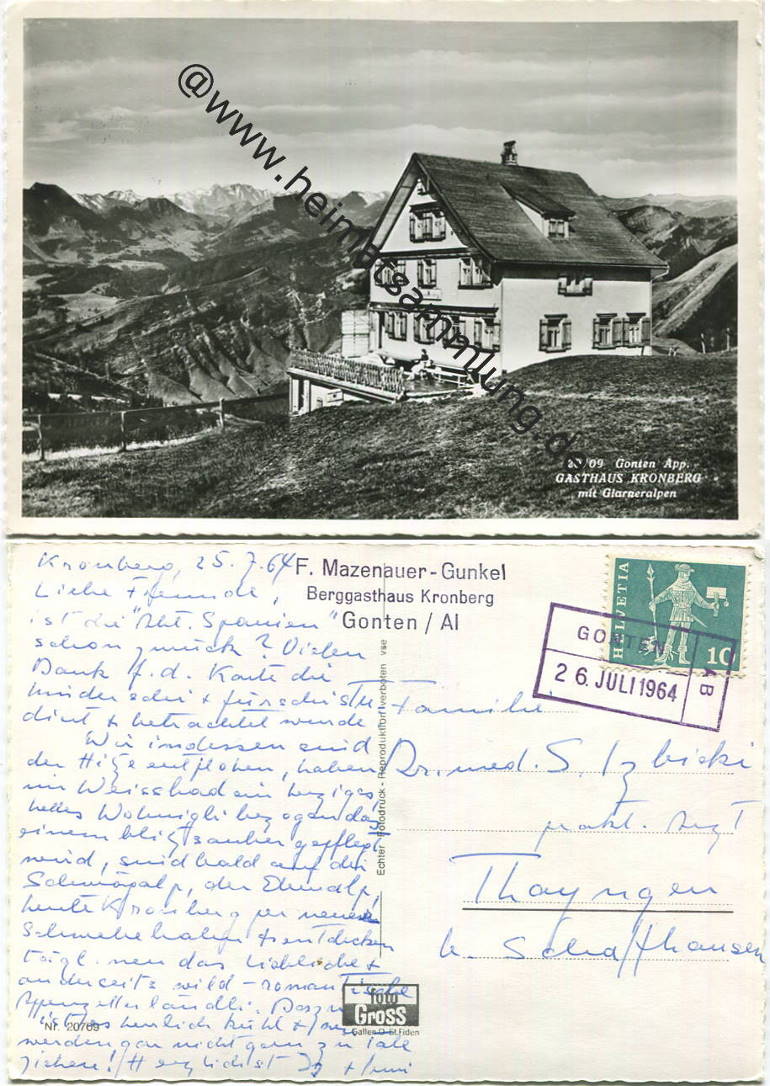 @www.heimatsammlung.de
20709 Gonten App.
GASTHAUS KRONBERG
mit Glarneralpen
Kronberg, 25.7.64
Liebe Freunde,
ist die "Abt. Spanien"
schon zurück? Vielen
Dank f. d. Karte die
dint + betrachtet wurde
Wir indessen sind
der Hitze entflohen, haben
im Weissbad ein herziges,
helles Wohnigli bezogen das
einem blitzsauber gepflegt
wird, sind bald auf der
Schwägalp, der Ebenalp,
heute Kronberg per neue
Schwebebahn + entdecken
tägl. neu das liebliche +
anderseits wild-romantische
Appenzellerländli. Dazu
ist es herrlich kühl +
werden gar nicht gern zu Tale
ziehen! Herzlichst
F. Mazenauer-Gunkel
Berggasthaus Kronberg
Gonten / AI
HELVETIA
10
GONTEN
26. JULI 1964
Familie
Dr. med. S. Izbicki
prakt. Arzt
Thayngen
b. Schaffhausen
Echter Fotodruck - Reproduktion verboten vse
foto
Gross
St. Gallen
Nr. 20709